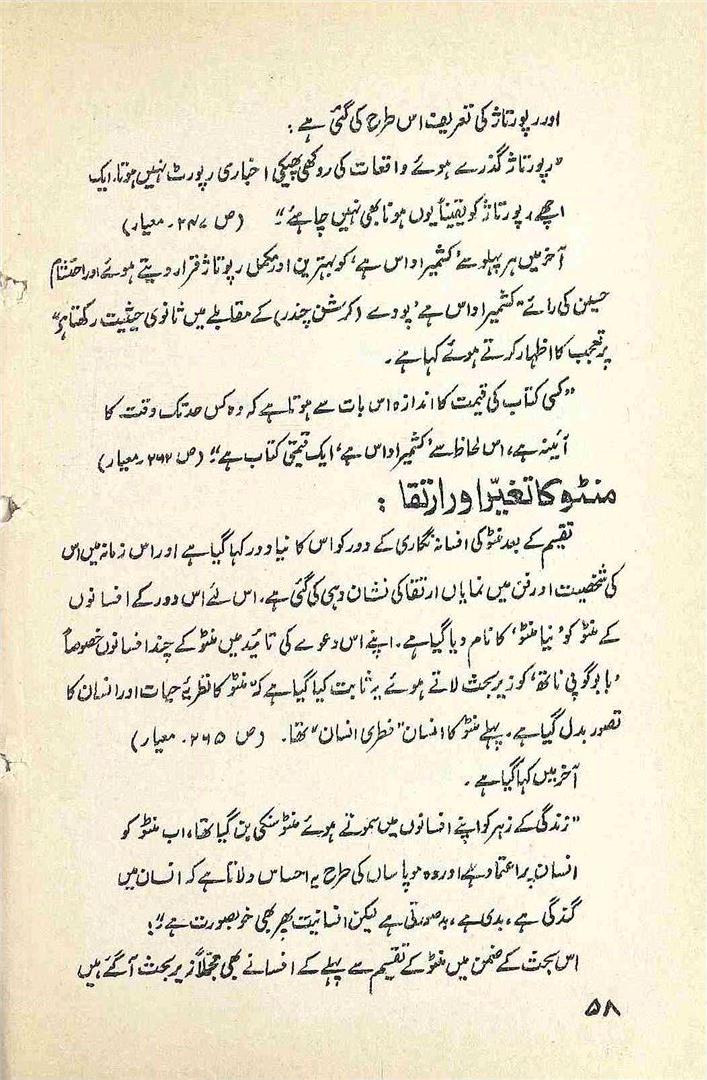 اور رپورتاژ کی تعریف اس طرح کی گئی ہے :
”رپورتاژ گذرے ہوئے واقعات کی روکھی پھیکی اخباری رپورٹ نہیں ہوتا۔ ایک
اچھے رپورتاژ کو یقیناً یوں ہونا بھی نہیں چاہئے“؛ (ص ۲۴۷۔ معیار)
آخر میں ہر پہلو سے ’کشمیر اداس ہے‘ کو بہترین اور مکمل رپوتاژ قرار دیتے ہوئے اور احتشام
حسین کی رائے ”کشمیر اداس ہے‘ پودے (کرشن چندر) کے مقابلے میں ثانوی حیثیت رکھتا ہے“
پر تعجب کا اظہار کرتے ہوئے کہا ہے ۔
”کسی کتاب کی قیمت کا اندازہ اس بات سے ہوتا ہے کہ وہ کس حد تک وقت کا
آئینہ ہے، اس لحاظ سے ’کشمیر اداس ہے‘ ایک قیمتی کتاب ہے“؛ (ص ۲۶۲۔ معیار)
منٹو کا تغیّر اور ارتقا :
تقسیم کے بعد منٹو کی افسانہ نگاری کے دور کو اس کا نیا دور کہا گیا ہے اور اس زمانہ میں اس
کی شخصیت اور فن میں نمایاں ارتقا کی نشان دہی کی گئی ہے، اس لئے اس دور کے افسانوں
کے منٹو کو ’نیا منٹو‘ کا نام دیا گیا ہے۔ اپنے اس دعوے کی تائید میں منٹو کے چند افسانوں خصوصاً
’بابو گوپی ناتھ‘ کو زیر بحث لاتے ہوئے یہ ثابت کیا گیا ہے کہ ”منٹو کا نظریۂ حیات اور انسان کا
تصور بدل گیا ہے۔ پہلے منٹو کا انسان ”فطری انسان“ تھا۔ (ص ۲۶۵۔ معیار)
آخر میں کہا گیا ہے ۔
”زندگی کے زہر کو اپنے افسانوں میں سموتے ہوئے منٹو سنکی بن گیا تھا، اب منٹو کو
انسان پر اعتماد ہے اور وہ موپاساں کی طرح یہ احساس دلاتا ہے کہ انسان میں
گندگی ہے، بدی ہے، بدصورتی ہے لیکن انسانیت پھر بھی خوبصورت ہے“؛
اس بحث کے ضمن میں منٹو کے تقسیم سے پہلے کے افسانے بھی مجملاً زیر بحث آ گئے ہیں
۵۸